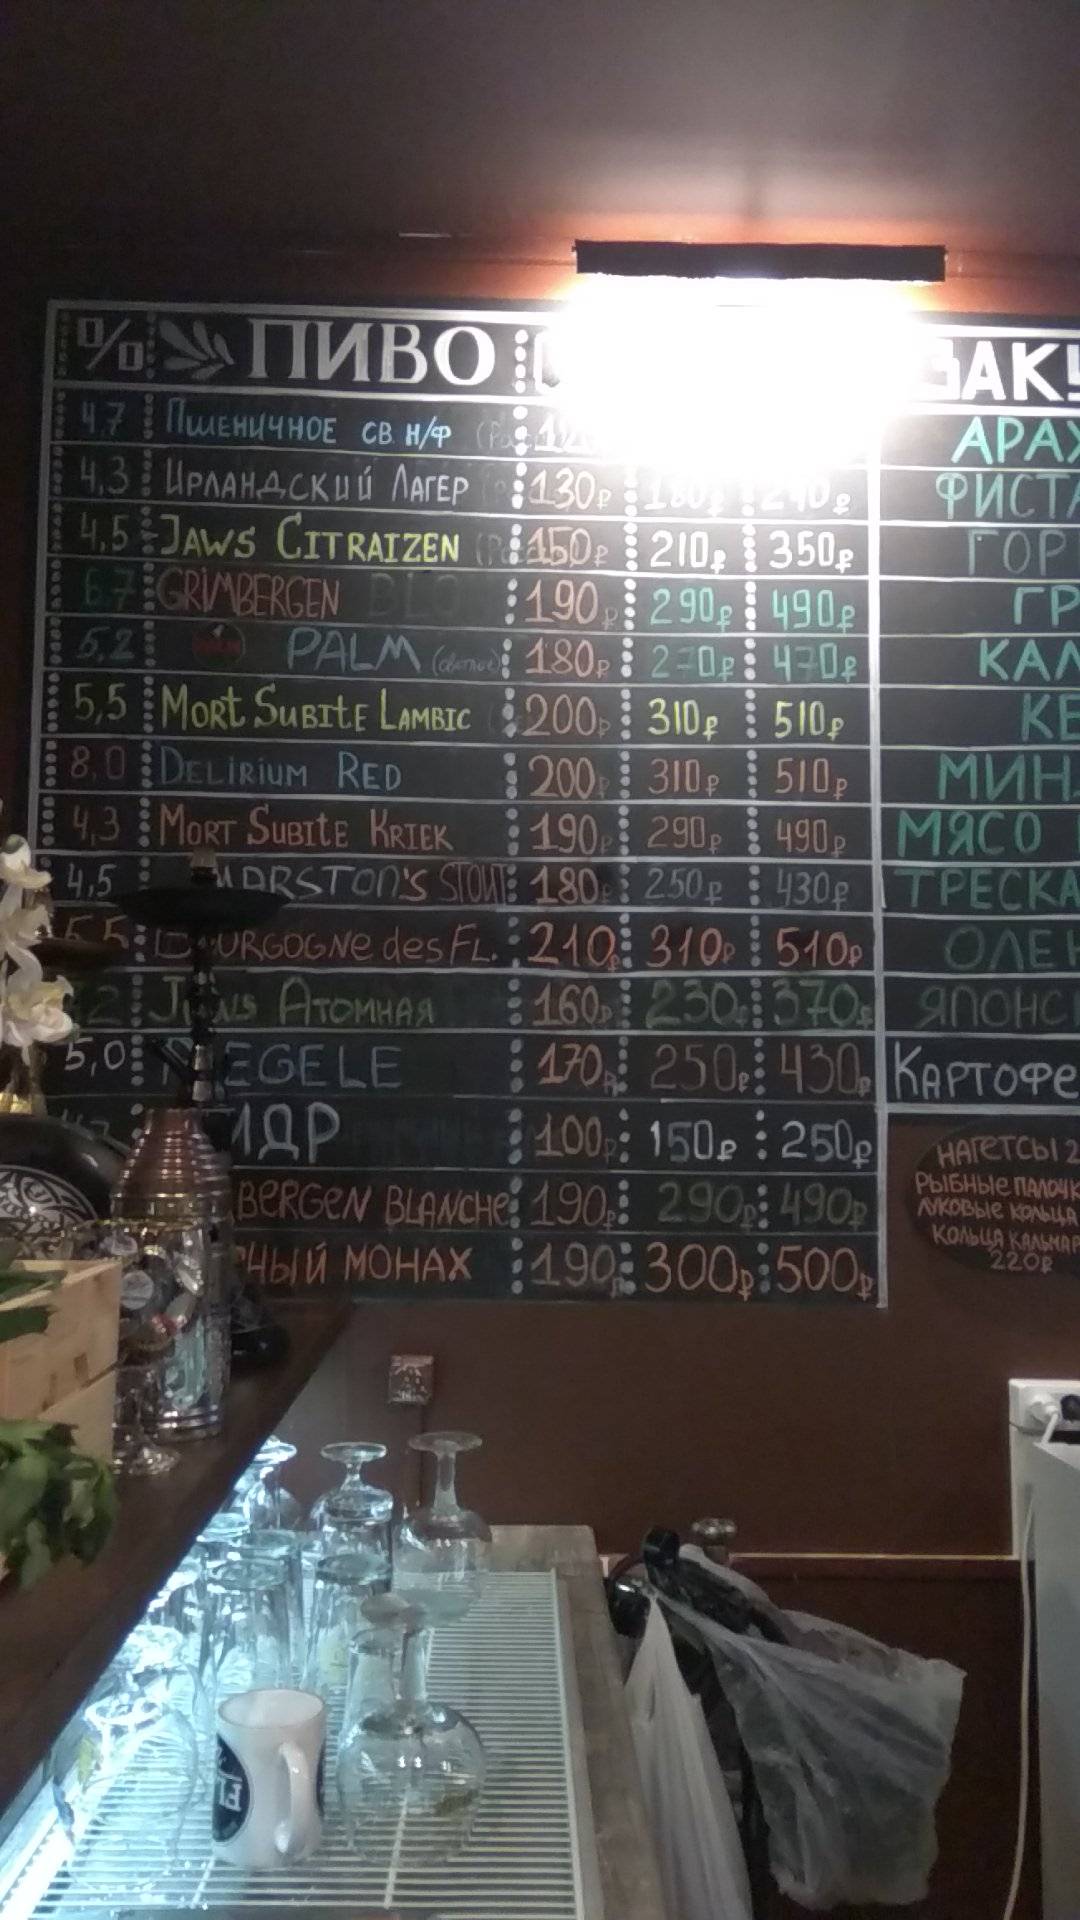 % ПИВО ЗАКУ
4,7 Пшеничное св. н/ф АРАХ
4,3 Ирландский Лагер 130₽ 180₽ 240₽ ФИСТА
4,5 JAWS CITRAIZEN 150₽ 210₽ 350₽ ГОР
6.7 GRIMBERGEN BLO 190₽ 290₽ 490₽ ГР
5,2 PALM (светлое) 180₽ 270₽ 470₽ КАЛ
5,5 MORT SUBITE LAMBIC 200₽ 310₽ 510₽ КЕ
8,0 DELIRIUM RED 200₽ 310₽ 510₽ МИН
4,3 MORT SUBITE KRIEK 190₽ 290₽ 490₽ МЯСО
4,5 MARSTON'S STOUT 180₽ 250₽ 430₽ ТРЕСКА
5,5 BOURGOGNE des FL. 210₽ 310₽ 510₽ ОЛЕН
JAWS АТОМНАЯ 160₽ 230₽ 370₽ ЯПОНС
5,0 EGELE 170₽ 250₽ 430₽ КАРТОФЕ
ИДР 100₽ 150₽ 250₽
BERGEN BLANCHE 190₽ 290₽ 490₽
НЫЙ МОНАХ 190₽ 300₽ 500₽
НАГЕТСЫ 2
РЫБНЫЕ ПАЛОЧК
ЛУКОВЫЕ КОЛЬЦА
КОЛЬЦА КАЛЬМАР
220₽